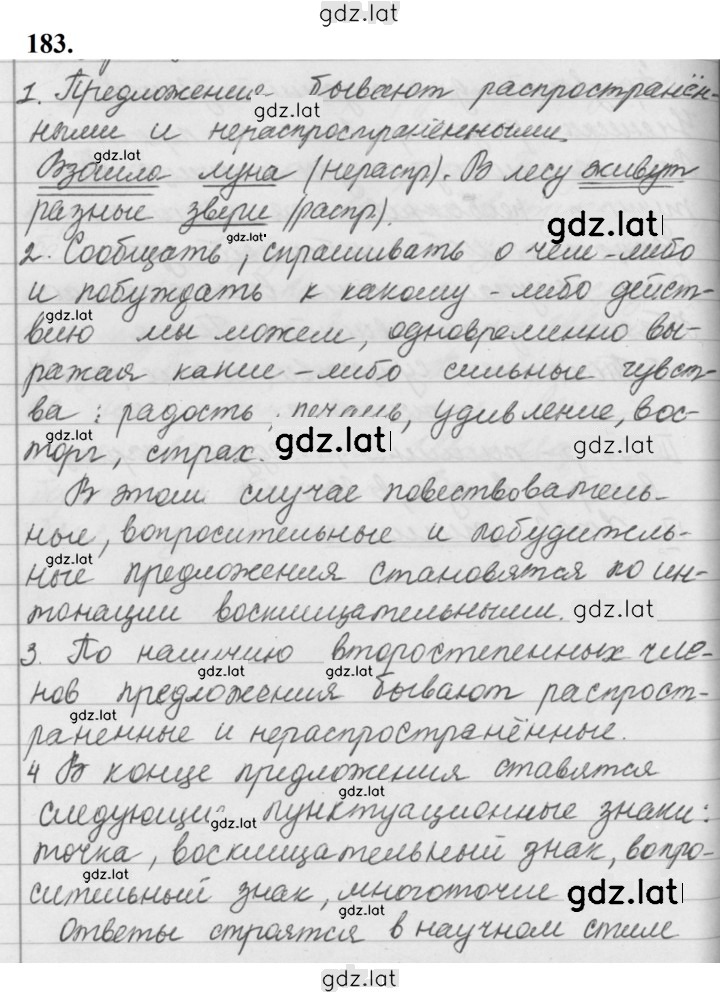 gdz.lat
183.
1. Предложения бывают распространён-
gdz.lat
ными и нераспространёнными
gdz.lat
Взошла луна (нераспр). В лесу живут
разные звери (распр).
gdz.lat
gdz.lat
2. Сообщать, спрашивать о чем-либо
и побуждать к какому-либо дейст-
gdz.lat
вию мы можем, одновременно вы-
ражая какие-либо сильные чувст-
ва: радость, печаль, удивление, вос-
торг, страх.
gdz.lat
gdz.lat
В этом случае повествователь-
ные, вопросительные и побудитель-
gdz.lat
ные предложения становятся по ин-
тонации восклицательными.
gdz.lat
3. По наличию второстепенных чле-
gdz.lat
gdz.lat
нов предложения бывают распрост-
gdz.lat
раненные и нераспространённые.
4 В конце предложения ставятся
gdz.lat
следующие пунктуационные знаки:
gdz.lat
точка, восклицательный знак, вопро-
gdz.lat
сительный знак, многоточие
gdz.lat
gdz.lat
Ответы строятся в научном стиле
gdz.lat